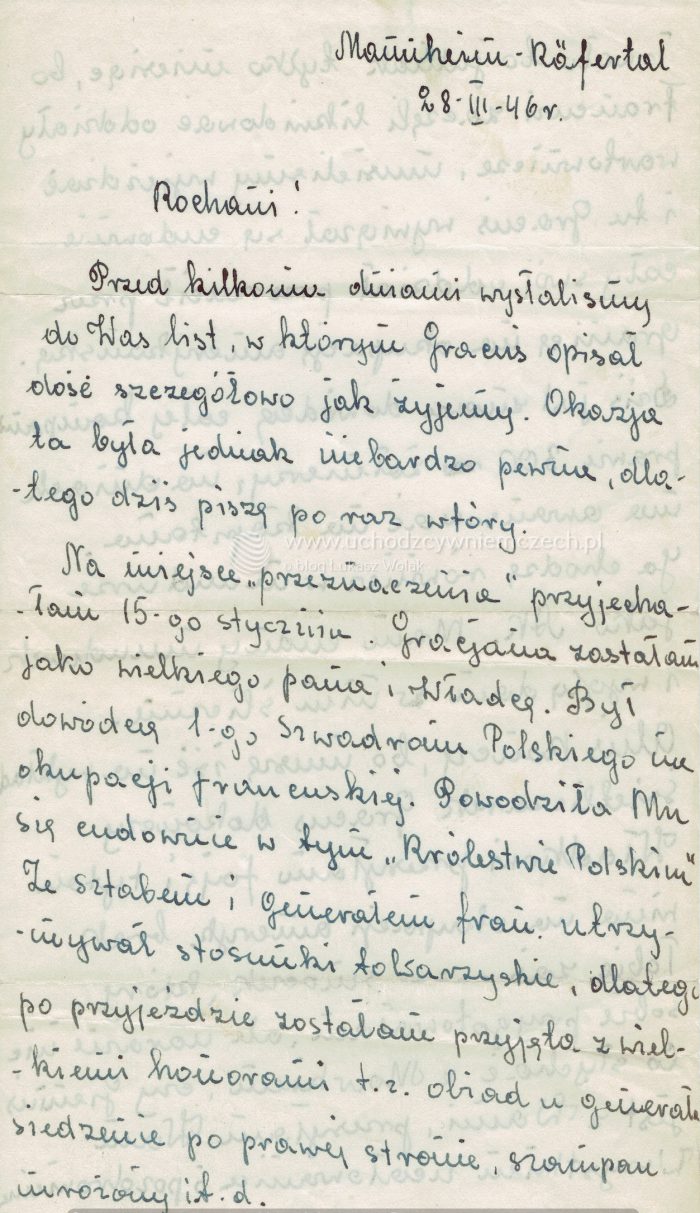 Mannheim-Käfertal
28-III-46r.
Kochani!
Przed kilkoma dniami wysłaliśmy
do Was list, w którym Gracuś opisał
dość szczegółowo jak żyjemy. Okazja
ta była jednak niebardzo pewna, dla-
-tego dziś piszę po raz wtóry.
www.uchodzcywniemczech.pl
blog Łukasz Wolak
Na miejsce „przeznaczenia" przyjecha-
-łam 15-go stycznia. Gracjana zastałam
jako wielkiego pana i władcę. Był
dowódcą 1-go Szwadronu Polskiego na
okupacji francuskiej. Powodziła Mu
się cudownie w tym „Królestwie Polskim"
Ze sztabem i generałem fran. utrzy-
-mywał stosunki towarzyskie, dlatego
po przyjeździe zostałam przyjęta z wiel-
-kiemi honorami t.z. obiad u generała
siedzenie po prawej stronie, szampan
mrożony i t. d.